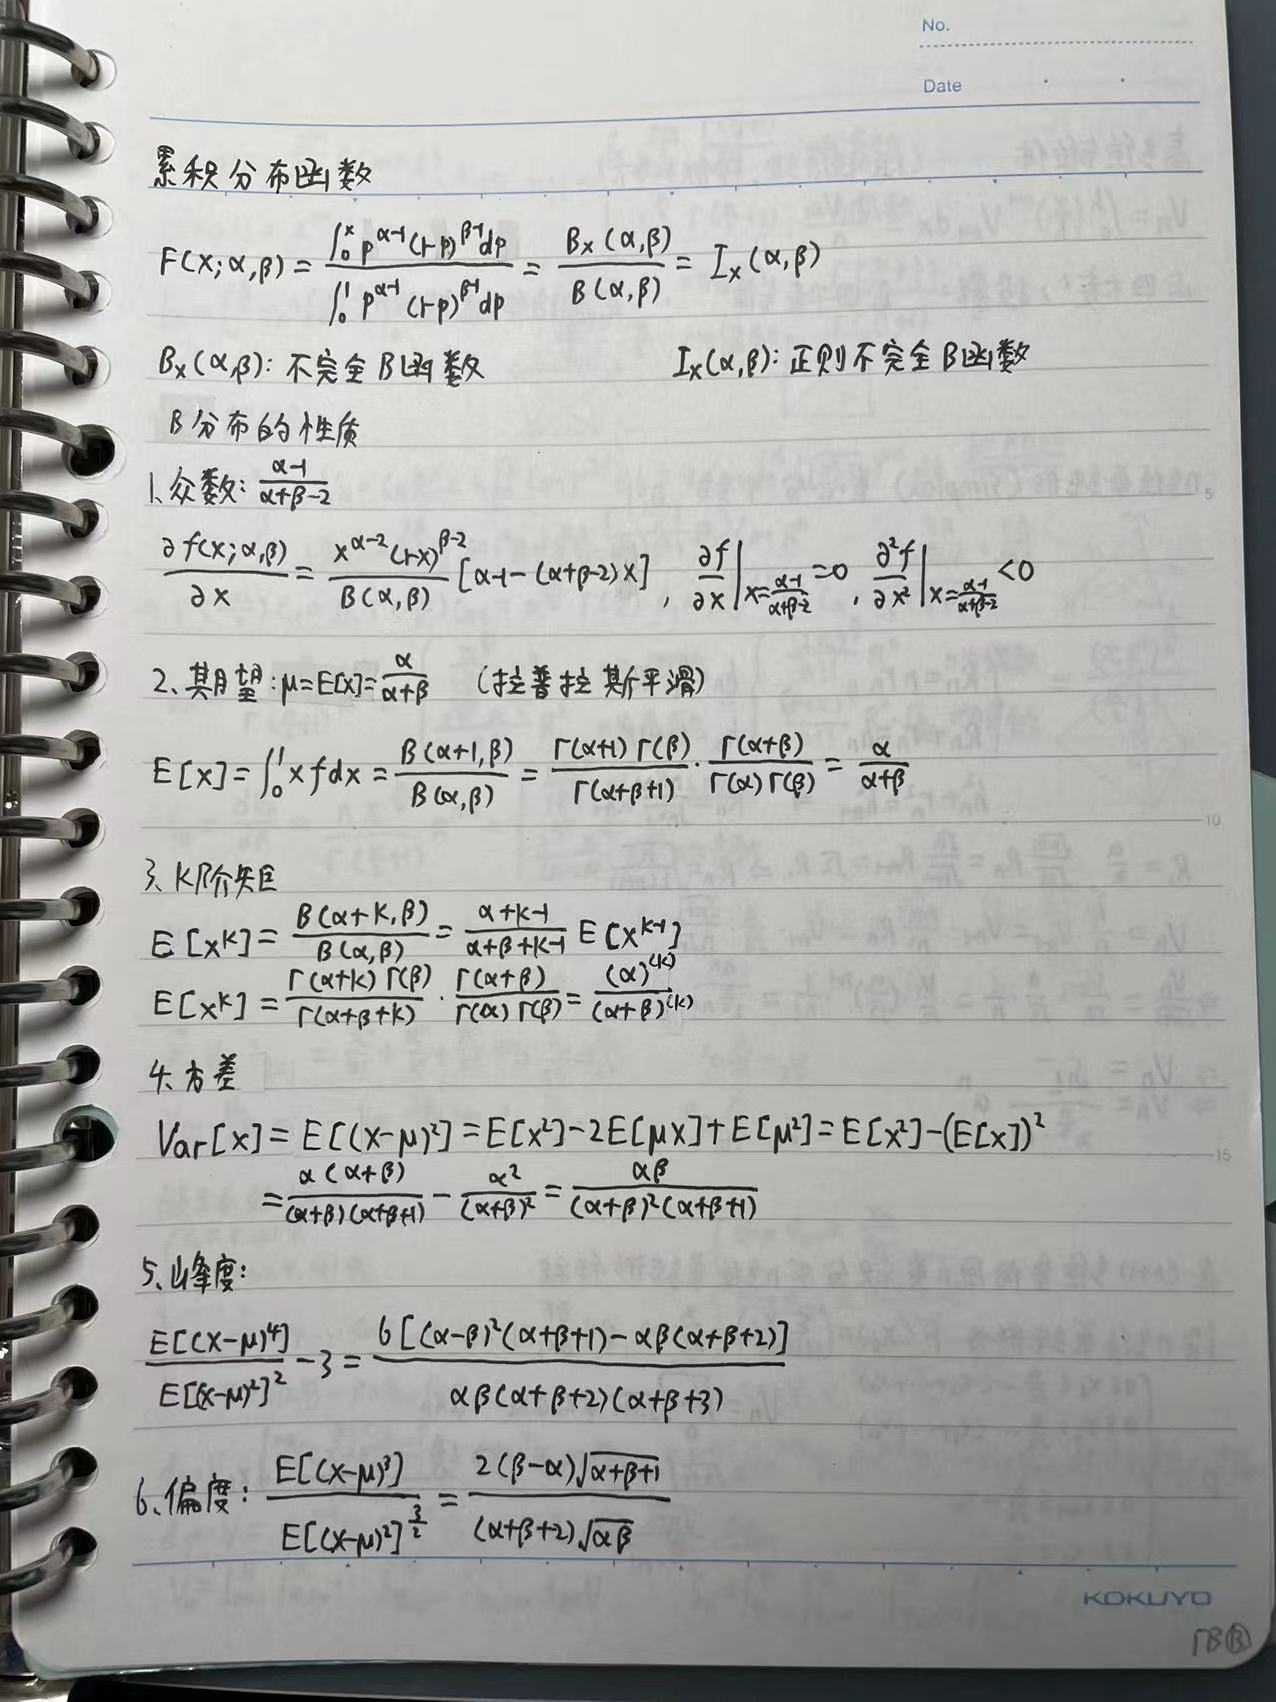 No.
Date
累积分布函数
F(x;α,β) = ∫₀ˣ p^(α-1) (1-p)^(β-1) dp / ∫₀¹ p^(α-1) (1-p)^(β-1) dp = Bₓ(α,β) / B(α,β) = Iₓ(α,β)
Bₓ(α,β): 不完全B函数 Iₓ(α,β): 正则不完全B函数
B分布的性质
1、众数: (α-1)/(α+β-2)
∂f(x;α,β)/∂x = x^(α-2) (1-x)^(β-2) / B(α,β) [α-1-(α+β-2)x], ∂f/∂x|x=(α-1)/(α+β-2) =0, ∂²f/∂x²|x=(α-1)/(α+β-2) <0
2、期望: μ=E[x]=α/(α+β) (拉普拉斯平滑)
E[x] = ∫₀¹ x f dx = B(α+1,β)/B(α,β) = Γ(α+1)Γ(β)/Γ(α+β+1) · Γ(α+β)/Γ(α)Γ(β) = α/(α+β)
3、K阶矩
E[x^K] = B(α+K,β)/B(α,β) = (α+K-1)/(α+β+K-1) E[x^(K-1)]
E[x^K] = Γ(α+K)Γ(β)/Γ(α+β+K) · Γ(α+β)/Γ(α)Γ(β) = (α)^(K)/(α+β)^(K)
4、方差
Var[x] = E[(x-μ)²] = E[x²]-2E[μx]+E[μ²] = E[x²]-(E[x])²
= α(α+β)/(α+β)(α+β+1) - α²/(α+β)² = αβ/(α+β)²(α+β+1)
5、峰度:
E[(x-μ)⁴]/E[(x-μ)²]² - 3 = 6[(α-β)²(α+β+1)-αβ(α+β+2)] / αβ(α+β+2)(α+β+3)
6、偏度: E[(x-μ)³]/E[(x-μ)²]^(3/2) = 2(β-α)√(α+β+1) / (α+β+2)√(αβ)
5
10
15
KOKUYO
ΓB⑬